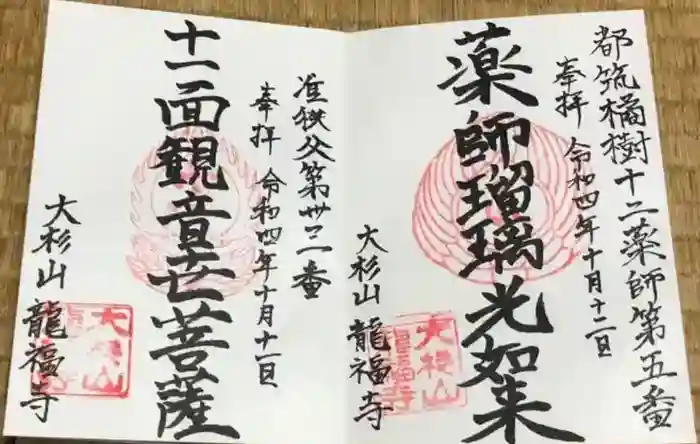 都筑橘樹十二薬師第五番
奉拝 令和四年十月十二日
薬師瑠璃光如来
大杉山 龍福寺
大杉山
龍福寺
准秩父第卅二番
奉拝 令和四年十月十二日
十一面観音世菩薩
大杉山 龍福寺
大杉山
龍福寺